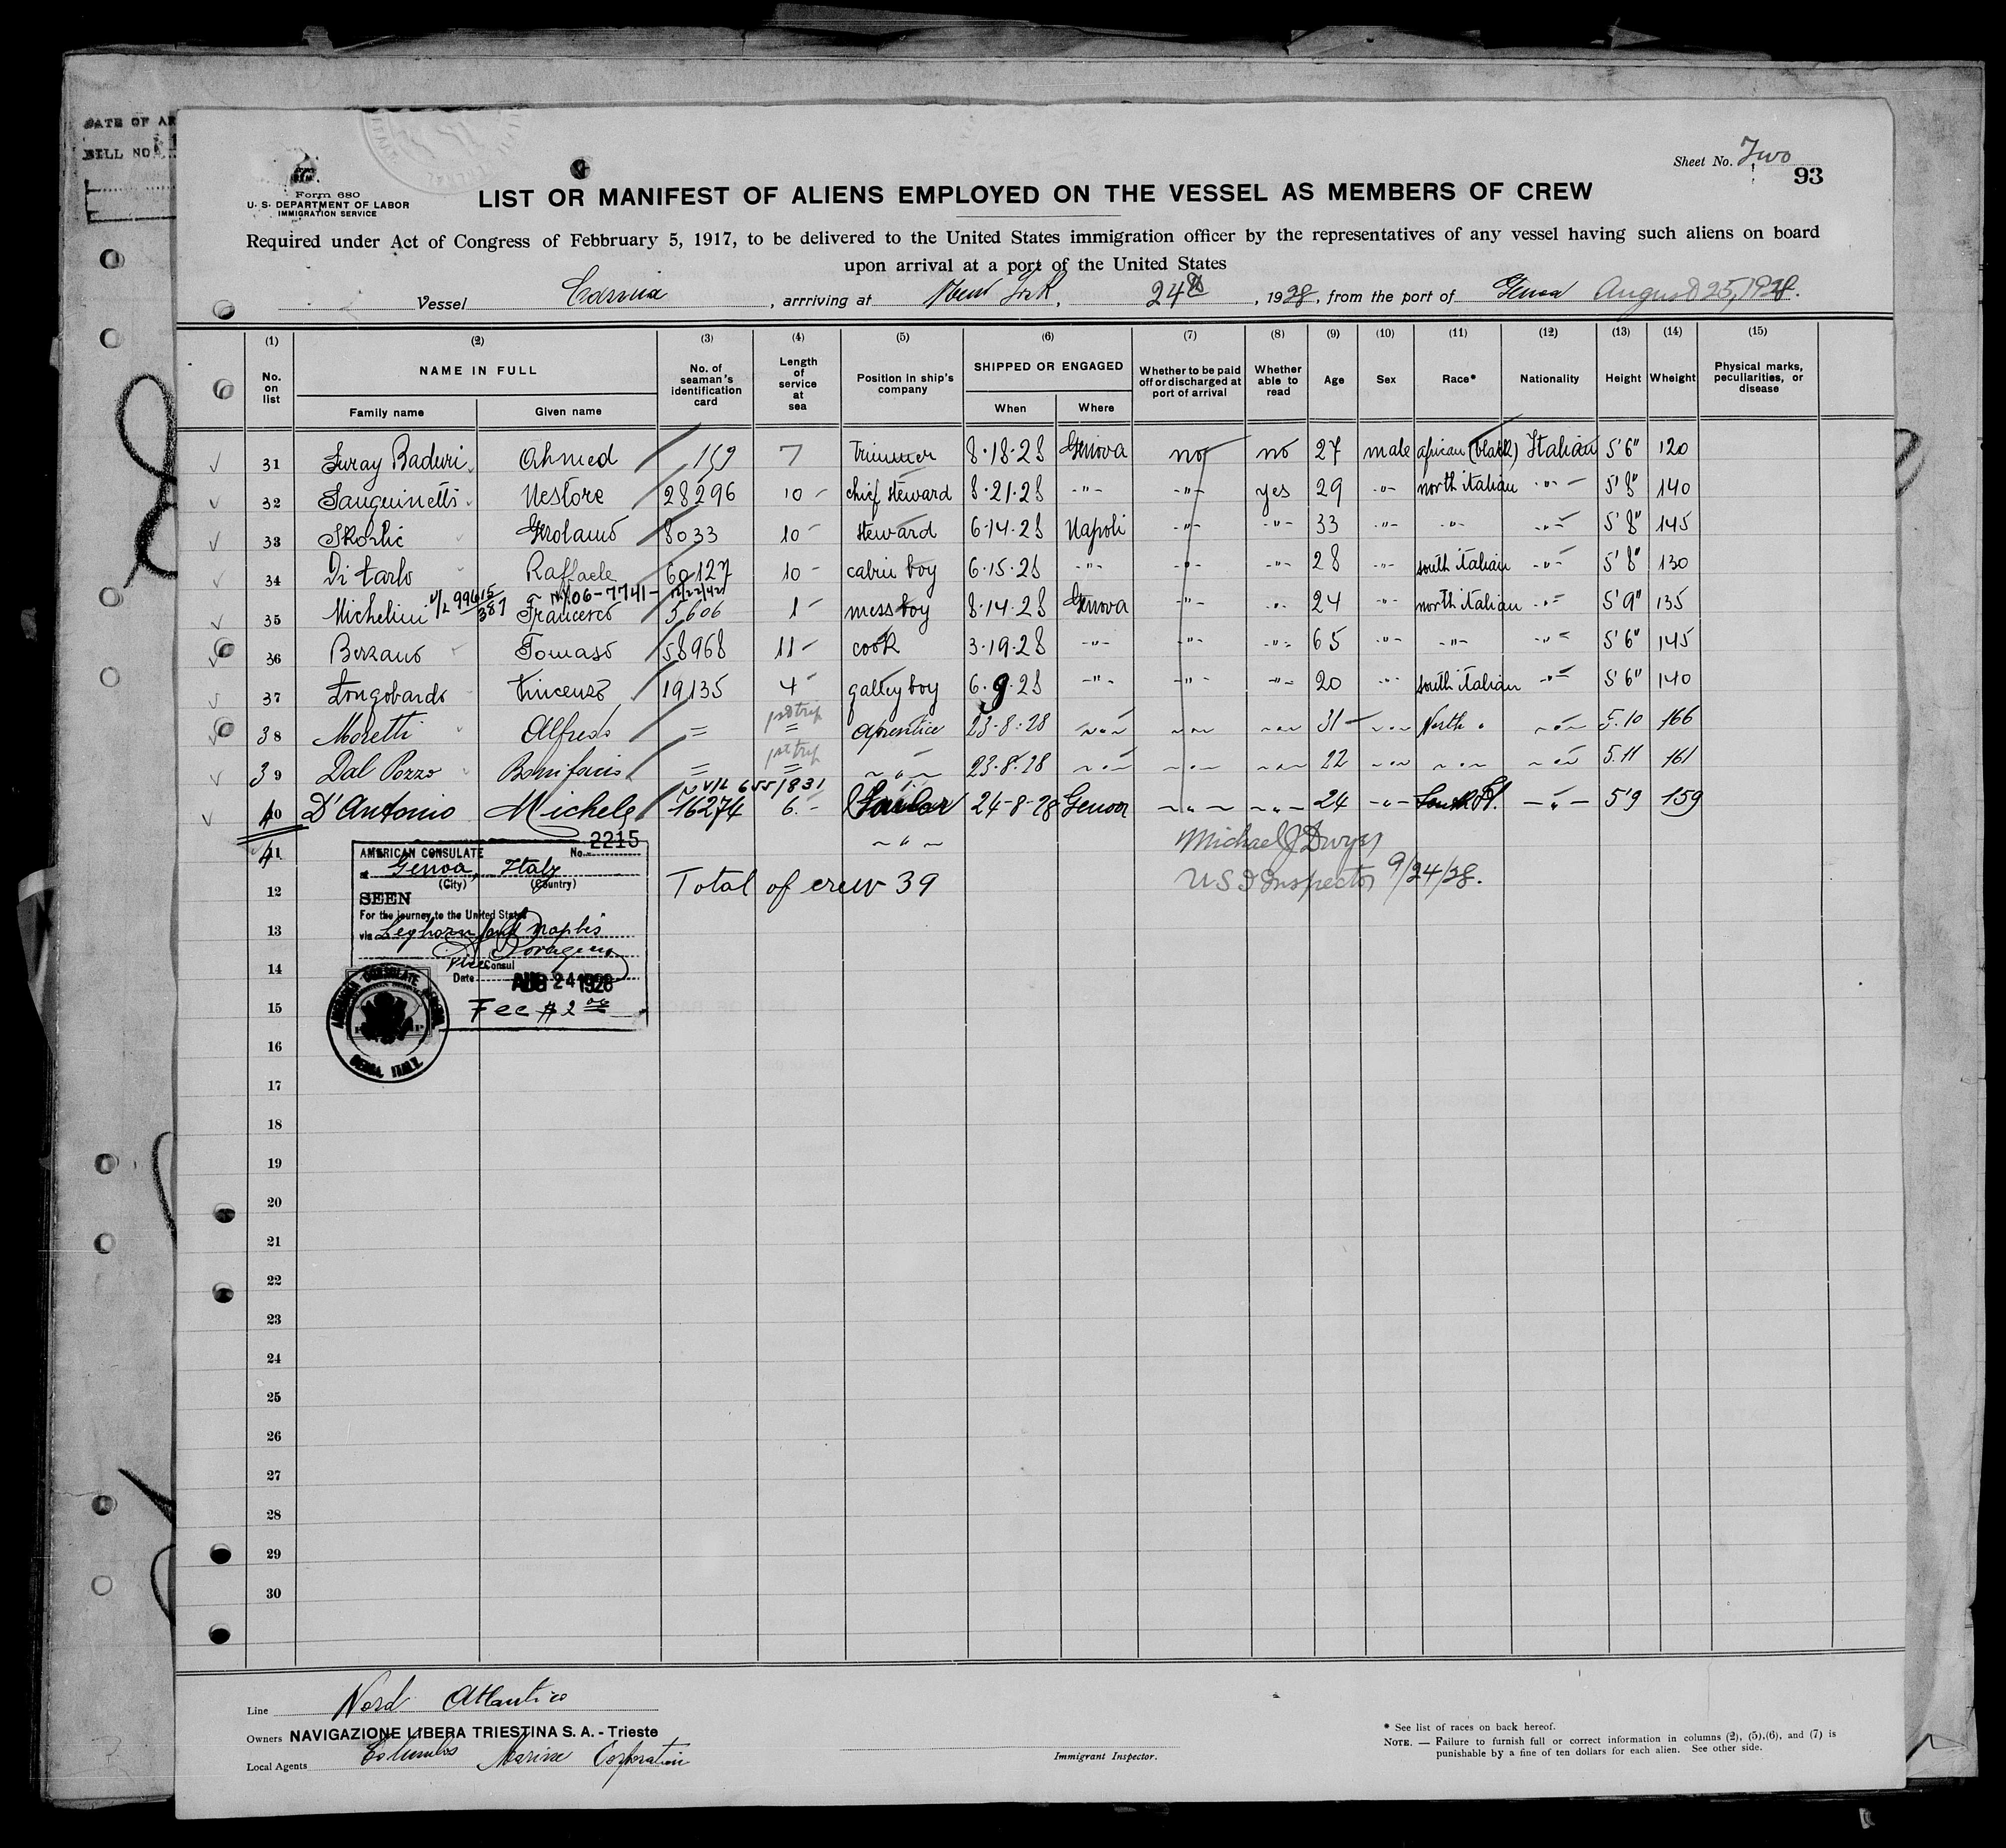 DATE OF AR
BILL NO.
Sheet No. Two
93
Form 680
U. S. DEPARTMENT OF LABOR
IMMIGRATION SERVICE
LIST OR MANIFEST OF ALIENS EMPLOYED ON THE VESSEL AS MEMBERS OF CREW
Required under Act of Congress of Febbruary 5, 1917, to be delivered to the United States immigration officer by the representatives of any vessel having such aliens on board
upon arrival at a port of the United States
Vessel Carnia, arrriving at New York, 24th, 1928, from the port of Genoa August 25, 1928.
(1) (2) (3) (4) (5) (6) (7) (8) (9) (10) (11) (12) (13) (14) (15)
No. on list NAME IN FULL Family name Given name No. of seaman's identification card Length of service at sea Position in ship's company SHIPPED OR ENGAGED When Where Whether to be paid off or discharged at port of arrival Whether able to read Age Sex Race* Nationality Height Wheight Physical marks, peculiarities, or disease
31 Suray Baduri Ahmed 159 7 trimmer 8·18·28 Genova no no 27 male african (black) Italian 5'6" 120
32 Sanguinetti Nestore 28296 10 - chief steward 8·21·28 -"- -"- yes 29 -"- north italian -"- 5'8" 140
33 Skorlic Girolamo 8033 10 - steward 6·14·28 Napoli -"- -"- 33 -"- -"- -"- 5'8" 145
34 Di Carlo Raffaele 60127 10 - cabin boy 6·15·28 -"- -"- -"- 28 -"- south italian -"- 5'8" 130
V/L 99615/387 NY06-7741- 12/22/42
35 Michelini Francesco 5606 1 - mess boy 8·14·28 Genova -"- -"- 24 -"- north italian -"- 5'9" 135
36 Berzano Tomaso 58968 11 - cook 3·19·28 -"- -"- -"- 65 -"- -"- -"- 5'6" 145
37 Longobardo Vincenzo 19135 4 - galley boy 6·9·28 -"- -"- -"- 20 -"- south italian -"- 5'6" 140
1st trip
38 Moretti Alfredo = = aprentice 23-8-28 ~"~ ~"~ ~"~ 31 ~"~ North " ~"~ 5.10 166
1st trip
39 Dal Pozzo Bonifacio = = ~"~ 23-8-28 ~"~ ~"~ ~"~ 22 ~"~ ~"~ ~"~ 5.11 161
V/L 655/831
40 D'Antonio Michele 16274 6 - Sailor 24-8-28 Genoa ~"~ ~"~ 24 -"- South It. -"- 5'9 159
11 ~"~ Michael J Dwyer
12 Total of crew 39 U S I Inspector 9/24/28.
AMERICAN CONSULATE No. 2215
at Genoa, Italy
(City) (Country)
SEEN
For the journey to the United States
via Leghorn and Naples
Vice Consul
Date AUG 24 1928
Fee $2 00
AMERICAN CONSULATE GENERAL
GENOA, ITALY.
13
14
15
16
17
18
19
20
21
22
23
24
25
26
27
28
29
30
Line Nord Atlantico
Owners NAVIGAZIONE LIBERA TRIESTINA S. A. - Trieste
Local Agents Columbus Marine Corporation
Immigrant Inspector.
* See list of races on back hereof.
NOTE. — Failure to furnish full or correct information in columns (2), (5),(6), and (7) is
punishable by a fine of ten dollars for each alien. See other side.